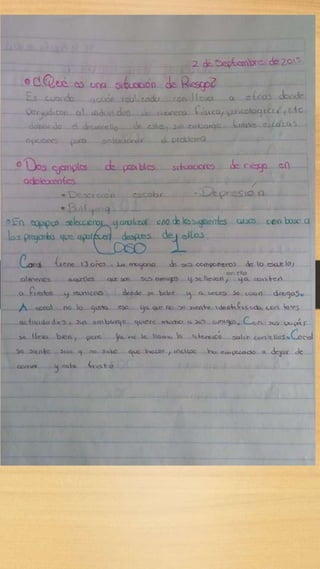 2 de Septiembre de 2015
¿Qué es una situación de Riesgo?
Es cuando acción realizada conlleva a otras donde
perjudican al individuo de manera física, psicológica, etc
dañando el desarrollo de este, sin embargo tienes escasas
opciones para solucionar el problema
Dos ejemplos de posibles situaciones de riesgo en
adolescentes
• Deserción escolar - Depresión
• Bullying
En equipos seleccionar y analizar uno de los siguientes casos con base a
las preguntas que aparecen despues de ellos
CASO 1
Coral tiene 13 años. La mayoria de sus compañeros de la escuela,
con ella
son sus amigos y se llevan, ya
a fiestas y reuniones donde se bebe y a veces se usan drogas.
A coral no le gusta eso ya que no se siente identificada con tales
actividades, sin embargo, quiere mucho a sus amigos. Con sus papás
se lleva bien, pero ya no le llama la atención salir con ellos. Coral
se siente sola y no sabe que hacer, incluso ha empezado a dejar de
comer y esta triste